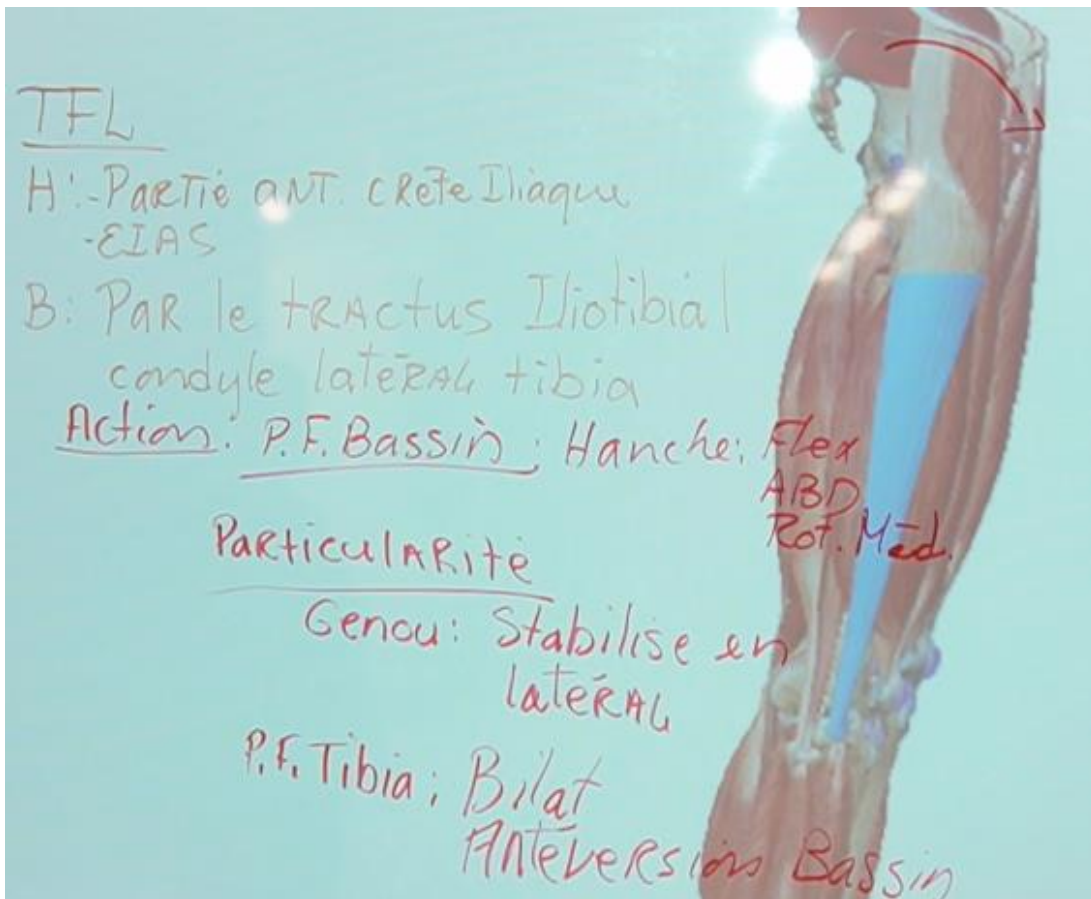 TFL
H: - Partie ANT. CRête Iliaque
- EIAS
B: PAR le tRActus Iliotibial
condyle latéRAL tibia
Action: P.F. Bassin; Hanche: Flex
ABD
Rot. Méd.
PARticulARité
Genou: Stabilise en
latéRAL
P.F. Tibia; Bilat
Antéversion Bassin